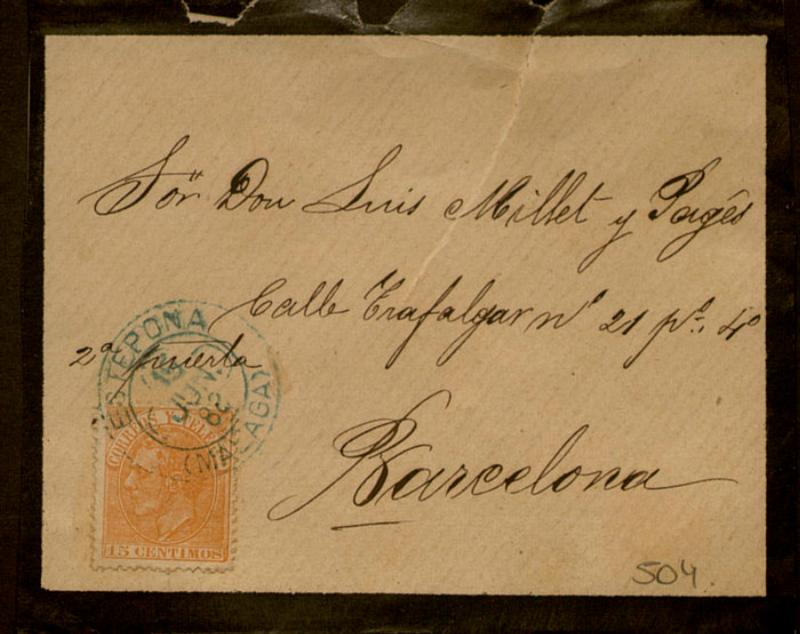 Sör Don Luis Millet y Pagés
Calle Trafalgar nº 21 pº. 4º
2ª puerta
Barcelona
ESTEPONA
JUN
82
(MALAGA)
CORREOS Y TELE
15 CENTIMOS
504.